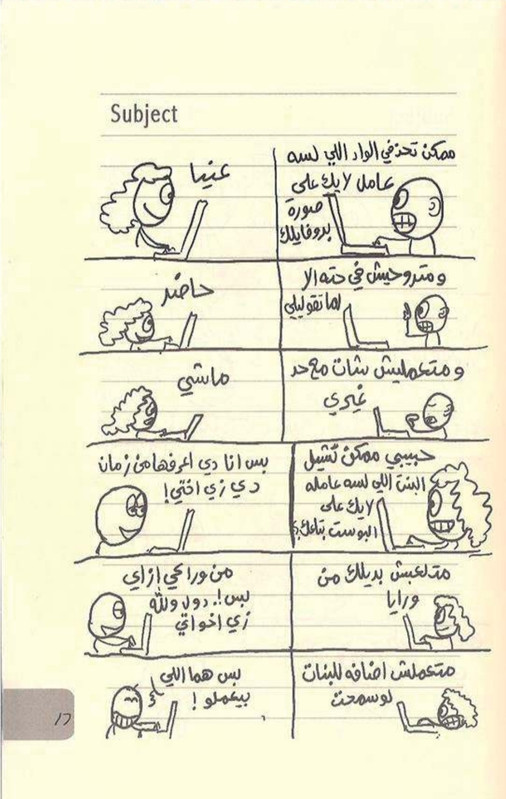 Subject
ممكن تحذفي الواد اللي لسه
عامل لايك على
صورة
بروفايلك
عنيا
ومتروحيش في حته الا
لما تقوليلي
حاضر
ومتعمليش شات مع حد
غيري
ماشي
حبيبي ممكن تشيل
البنت اللي لسه عامله
لايك على
البوست بتاعك؟
بس انا دي اعرفها من زمان
دي زي اختي!
متلعبش بديلك من
ورايا
من ورا كي إزاي
بس!. دول والله
زي اخواتي
متعملش اضافه للبنات
لو سمحت
بس هما اللي
بيعملو!
١٢